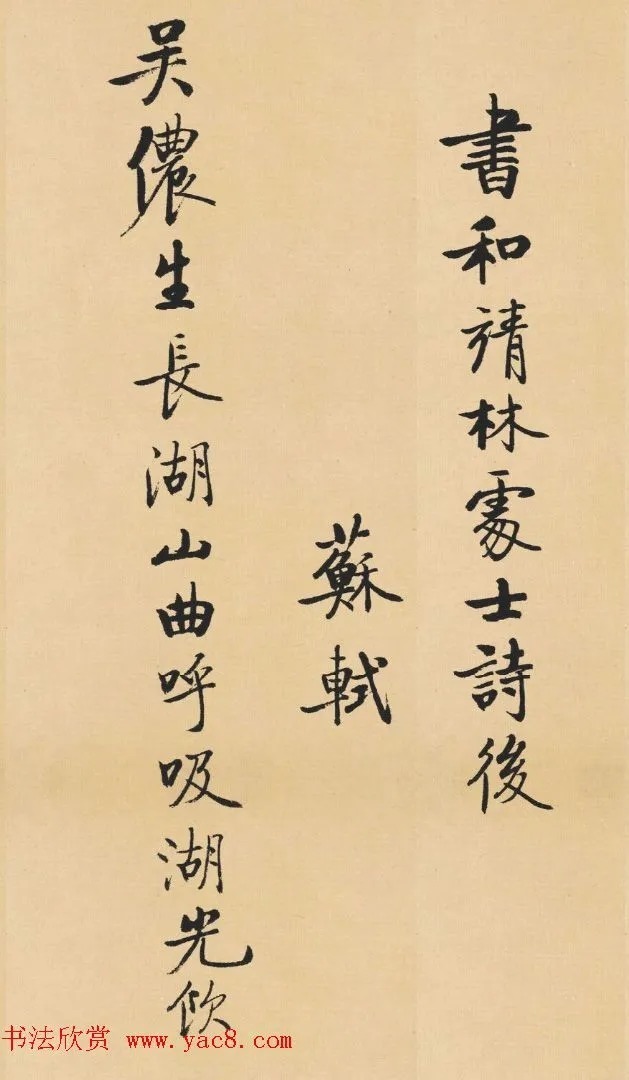 書和靖林處士詩後
蘇軾
吴儂生長湖山曲呼吸湖光飲
书法欣赏 www.yac8.com